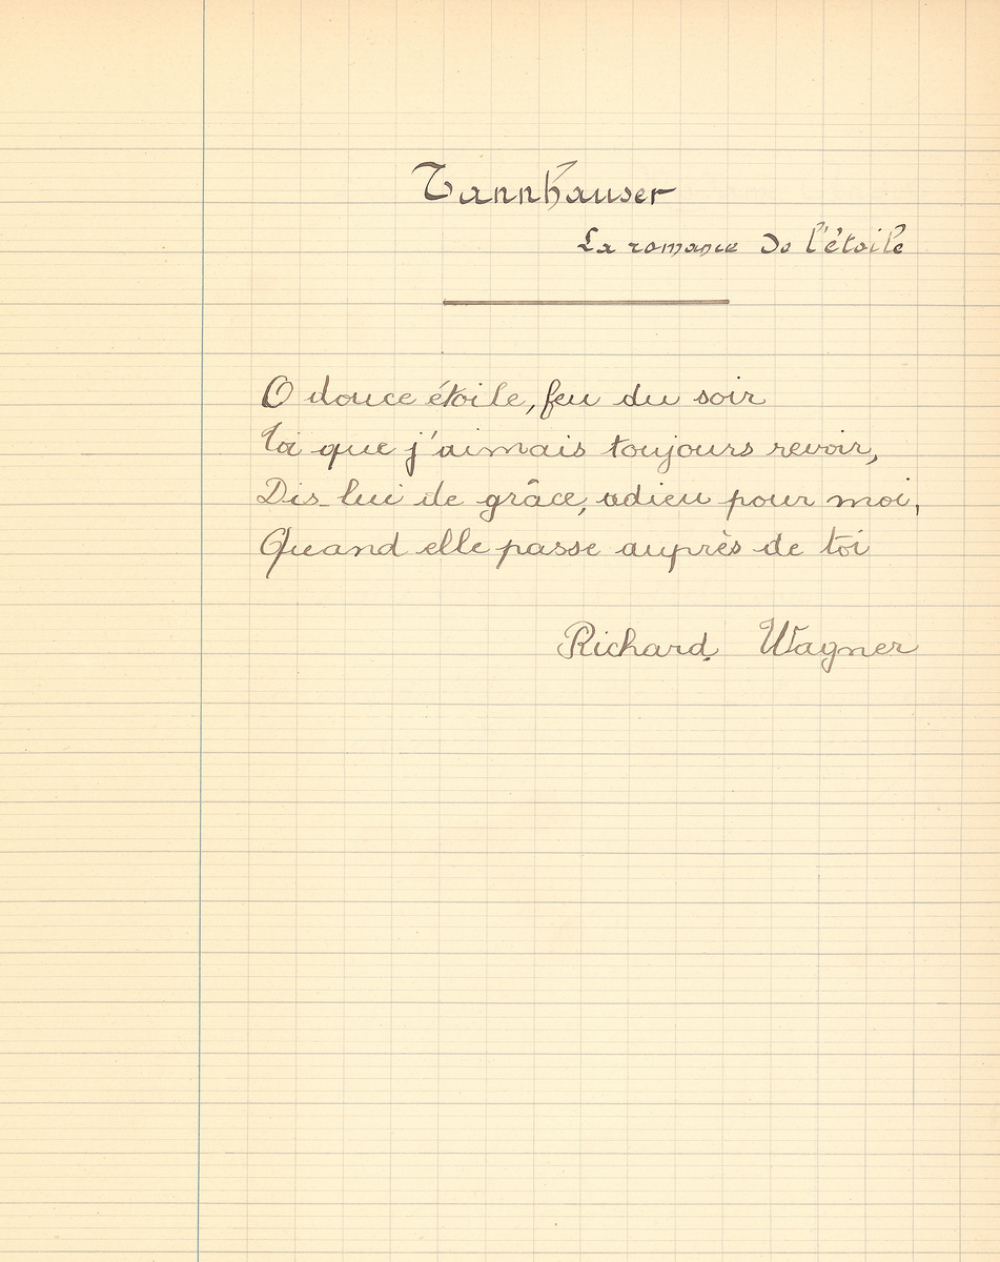 Tannhauser
La romance de l'étoile
O douce étoile, feu du soir
Toi que j'aimais toujours revoir,
Dis-lui de grâce, adieu pour moi,
Quand elle passe auprès de toi
Richard Wagner